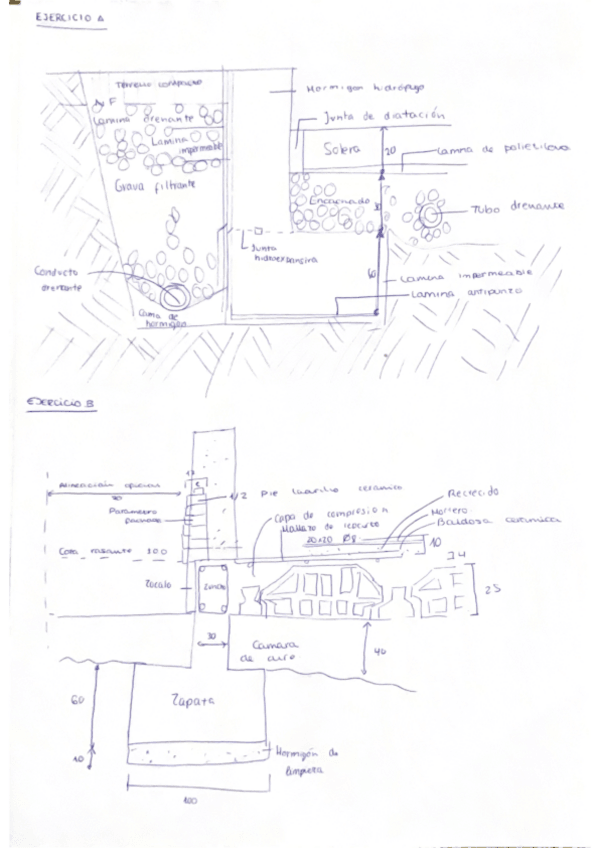 EJERCICIO A
Terreno compactado
N F
Lamina drenante
Lamina
impermeable
Grava filtrante
Conducto
drenante
Cuna de
hormigón
Hormigon hidrófugo
Junta de dilatación
Solera
20
Lamina de polietileno
Encachado
Tubo drenante
Junta
hidroexpansiva
60
Lamina impermeable
Lamina antipunzo
EJERCICIO B
Alineación oficial
1/2 Pie ladrillo ceramico
Paramento
fachada
Capa de compresión
Mallazo de reparto
20x20 Ø8
Recrecido
Mortero
Baldosa ceramica
10
4
25
Cota rasante 100
Zocalo
Zuncho
30
Camara
de aire
40
Zapata
60
10
Hormigón de
limpieza
100